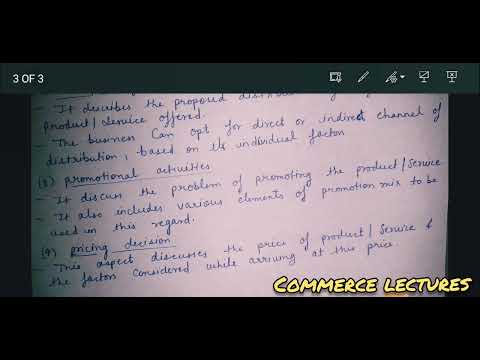 3 OF 3
- It describes the proposed
Product/Service offered.
- The business can opt for direct or indirect channel of
distribution, based on its individual factor
(3) promotional activities
- It discuss the problem of promoting the product/Service
- It also includes various elements of promotion mix to be
used in this regard.
(4) pricing decision
- This aspect discusses the price of product/Service &
the factors considered while arriving at this price.
COMMERCE LECTURES